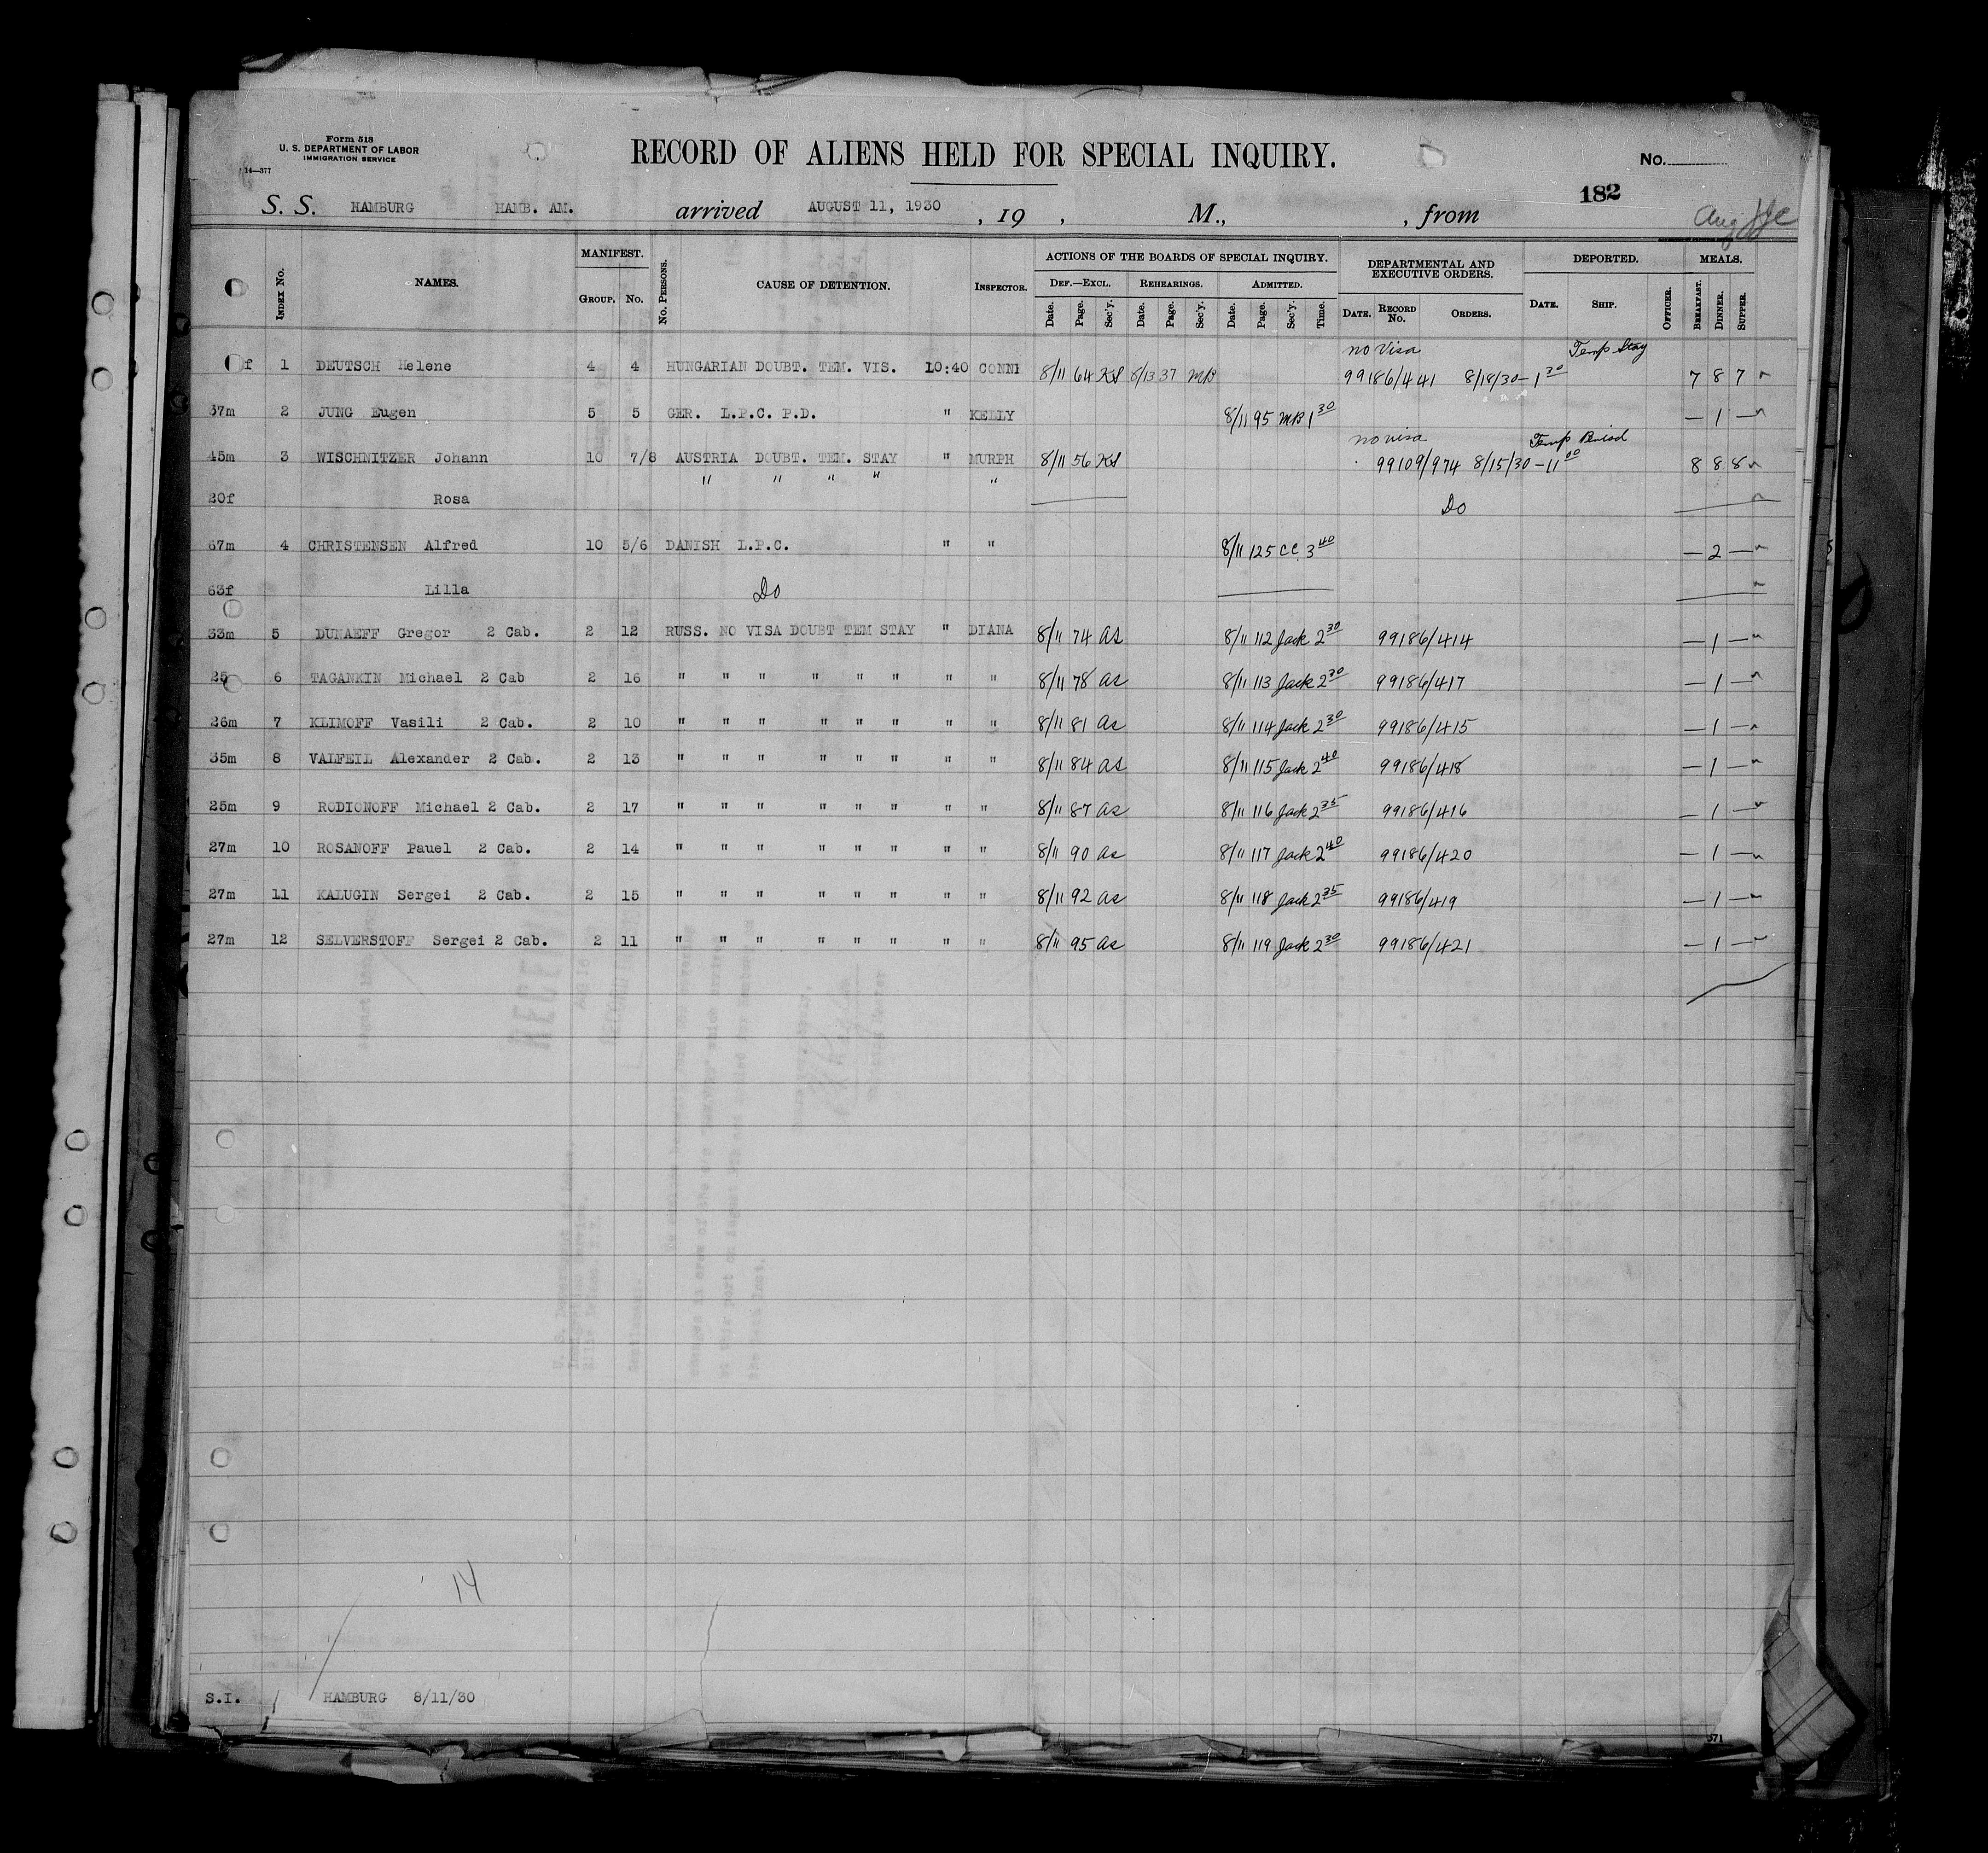 Form 518
U. S. DEPARTMENT OF LABOR
IMMIGRATION SERVICE
14—377
RECORD OF ALIENS HELD FOR SPECIAL INQUIRY.
No.
182
S. S. HAMBURG HAMB. AM. arrived AUGUST 11, 1930 , 19 , M., , from
Aug
INDEX No. NAMES. MANIFEST. GROUP. No. No. PERSONS. CAUSE OF DETENTION. INSPECTOR. ACTIONS OF THE BOARDS OF SPECIAL INQUIRY. DEF.—EXCL. Date. Page. Sec'y. REHEARINGS. Date. Page. Sec'y. ADMITTED. Date. Page. Sec'y. Time. DEPARTMENTAL AND EXECUTIVE ORDERS. DATE. RECORD No. ORDERS. DEPORTED. DATE. SHIP. OFFICER. MEALS. BREAKFAST. DINNER. SUPPER.
no Visa Temp Stay
f 1 DEUTSCH Helene 4 4 HUNGARIAN DOUBT. TEM. VIS. 10:40 CONNI 8/11 64 KS 8/13 37 MB 99186/441 8/18/30 - 1 30 7 8 7
37m 2 JUNG Eugen 5 5 GER. L.P.C. P.D. " KELLY 8/11 95 MB 1 30 — 1 —
no visa Temp Period
45m 3 WISCHNITZER Johann 10 7/8 AUSTRIA DOUBT. TEM. STAY " MURPH 8/11 56 KS 99109/974 8/15/30 - 11 00 8 8 8
" " " " "
20f Rosa Do
67m 4 CHRISTENSEN Alfred 10 5/6 DANISH L.P.C. " " 8/11 125 CC 3 40 — 2 —
63f Lilla Do
33m 5 DUNAEFF Gregor 2 Cab. 2 12 RUSS. NO VISA DOUBT TEM STAY " DIANA 8/11 74 as 8/11 112 Jack 2 30 99186/414 — 1 —
25 6 TAGANKIN Michael 2 Cab 2 16 " " " " " " " " 8/11 78 as 8/11 113 Jack 2 30 99186/417 — 1 —
26m 7 KLIMOFF Vasili 2 Cab. 2 10 " " " " " " " " 8/11 81 as 8/11 114 Jack 2 30 99186/415 — 1 —
35m 8 VALFEIL Alexander 2 Cab. 2 13 " " " " " " " " 8/11 84 as 8/11 115 Jack 2 40 99186/418 — 1 —
25m 9 RODIONOFF Michael 2 Cab. 2 17 " " " " " " " " 8/11 87 as 8/11 116 Jack 2 35 99186/416 — 1 —
27m 10 ROSANOFF Pauel 2 Cab. 2 14 " " " " " " " " 8/11 90 as 8/11 117 Jack 2 40 99186/420 — 1 —
27m 11 KALUGIN Sergei 2 Cab. 2 15 " " " " " " " " 8/11 92 as 8/11 118 Jack 2 35 99186/419 — 1 —
27m 12 SELVERSTOFF Sergei 2 Cab. 2 11 " " " " " " " " 8/11 95 as 8/11 119 Jack 2 30 99186/421 — 1 —
14
S.I. HAMBURG 8/11/30
571